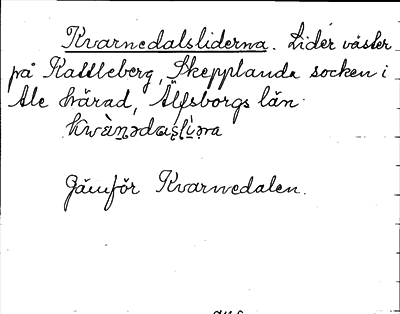 Kvarnedalsliderna. Lider väster
på Kattleberg, Skepplanda socken i
Ale härad, Älfsborgs län.
Jämför Kvarnedalen.